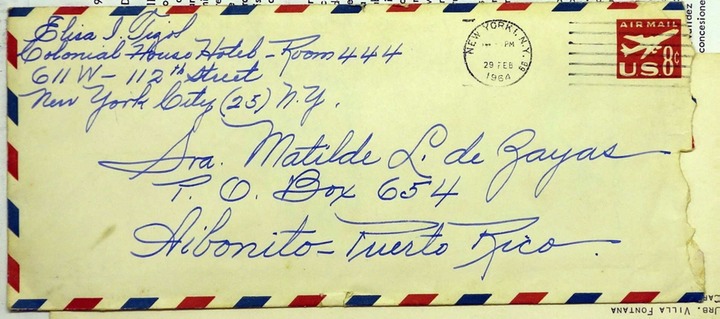 Elisa I. Tizol
Colonial House Hotel - Room 444
611 W - 112th Street
New York City (25) N.Y.
NEW YORK, N.Y.
PM
29 FEB
1964
AIR MAIL
U.S. 8¢
Sra. Matilde L. de Zayas
P. O. Box 654
Aibonito - Puerto Rico
URB. VILLA FONTANA